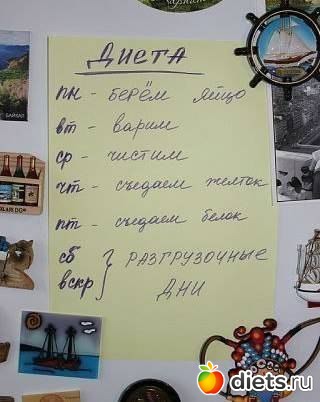 ДИЕТА
пн - берём яйцо
вт - варим
ср - чистим
чт - съедаем желток
пт - съедаем белок
сб } РАЗГРУЗОЧНЫЕ
вскр } ДНИ
БАЙКАЛ
diets.ru